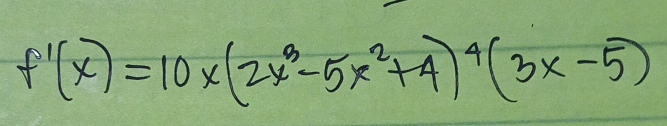 f'(x) = 10x(2x³-5x²+4)⁴(3x-5)